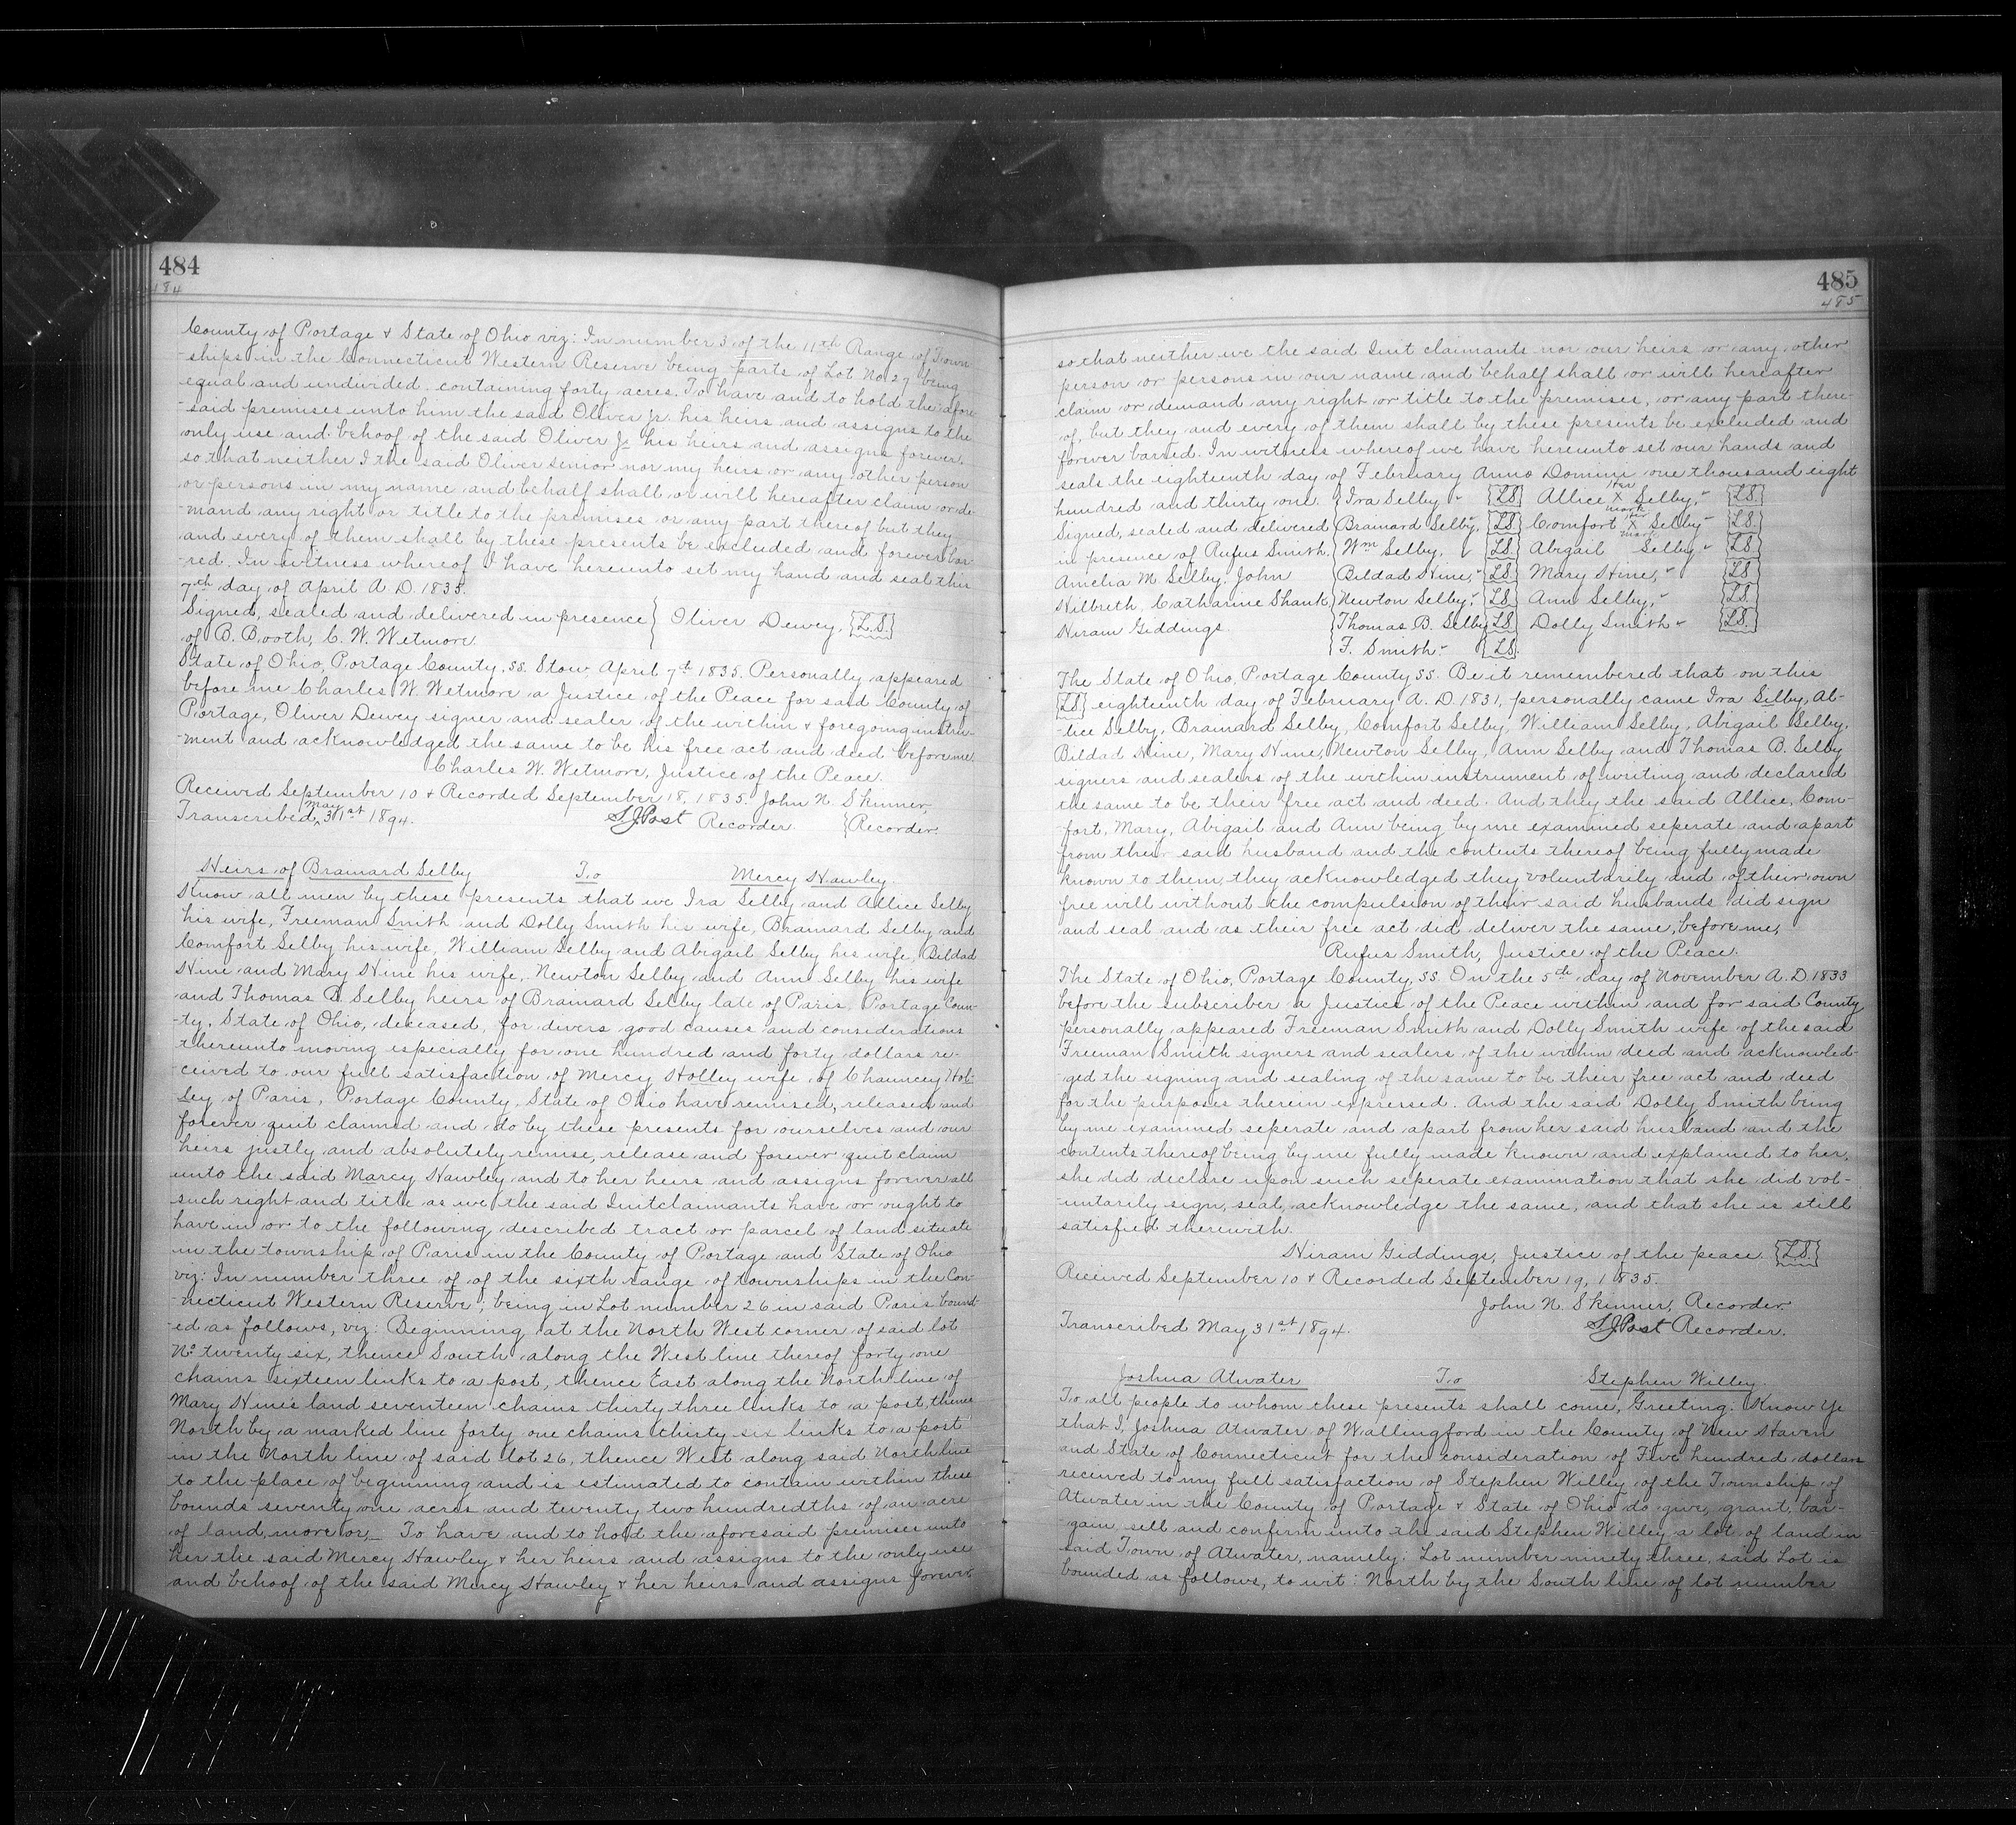 484
484
County of Portage & State of Ohio viz: In number 3 of the 11th Range of Town
-ships in the Connecticut Western Reserve being parts of Lot No 27 being
equal and undivided containing forty acres. To have and to hold the afore-
-said premises unto him the said Oliver Jr. his heirs and assigns to the
only use and behoof of the said Oliver Jr his heirs and assigns forever,
so that neither I the said Oliver senior nor my heirs or any other person
or persons in my name and behalf shall or will hereafter claim or de-
-mand any right or title to the premises or any part thereof but they
and every of them shall by these presents be excluded and forever bar-
-red. In witness whereof I have hereunto set my hand and seal this
7th day of April A D. 1835.
Signed, sealed and delivered in presence } Oliver Dewey. {L.S.}
of B. Booth, C. W. Wetmore.
State of Ohio, Portage County, ss. Stow April 7th 1835. Personally appeared
before me Charles W. Wetmore a Justice of the Peace for said County of
Portage, Oliver Dewey signer and sealer of the within & foregoing instru-
-ment and acknowledged the same to be his free act and deed before me.
Charles W. Wetmore, Justice of the Peace.
Received September 10 & Recorded September 18, 1835. John N. Skinner,
Transcribed May 31st 1894. S J Post Recorder. {Recorder.
Heirs of Brainard Selby To Mercy Hawley
Know all men by these presents that we Ira Selby and Allice Selby
his wife, Freeman Smith and Dolly Smith his wife, Brainard Selby and
Comfort Selby his wife, William Selby and Abigail Selby his wife, Bildad
Hine and Mary Hine his wife, Newton Selby and Ann Selby his wife
and Thomas B. Selby heirs of Brainard Selby late of Paris, Portage Coun-
-ty, State of Ohio, deceased, for divers good causes and considerations
thereunto moving especially for one hundred and forty dollars re-
-ceived to our full satisfaction of Mercy Holley wife of Chauncey Hol-
ley of Paris, Portage County, State of Ohio have remised, released and
forever quit claimed and do by these presents for ourselves and our
heirs justly and absolutely remise, release and forever quit claim
unto the said Marcy Hawley and to her heirs and assigns forever all
such right and title as we the said Quitclaimants have or ought to
have in or to the following described tract or parcel of land situate
in the township of Paris in the County of Portage and State of Ohio
viz: In number three of of the sixth range of townships in the Con-
-necticut Western Reserve; being in Lot number 26 in said Paris bound-
-ed as follows, viz: Beginning at the North West corner of said lot
No twenty six, thence South along the West line thereof forty one
chains sixteen links to a post, thence East along the North line of
Mary Hine's land seventeen chains thirty three links to a post, thence
North by a marked line forty one chains thirty six links to a post
in the North line of said lot 26, thence West along said North line
to the place of beginning and is estimated to contain within these
bounds seventy one acres and twenty two hundredths of an acre
of land, more or, To have and to hold the aforesaid premises unto
her the said Mercy Hawley & her heirs and assigns to the only use
and behoof of the said Mercy Hawley & her heirs and assigns forever
485
485
so that neither we the said Quit claimants nor our heirs or any other
person or persons in our name and behalf shall or will hereafter
claim or demand any right or title to the premises, or any part there-
of, but they and every of them shall by these presents be excluded and
forever barred. In witness whereof we have hereunto set our hands and
seals the eighteenth day of February Anno Domini one thousand eight
hundred and thirty one. {Ira Selby {L.S.} Allice her X mark Selby, {L.S.}
Signed, sealed and delivered {Brainard Selby, {L.S.} Comfort her X mark Selby {L.S.}
in presence of Rufus Smith, {Wm Selby, {L.S.} Abigail Selby {L.S.}
Amelia M. Selby, John {Bildad Hine, {L.S.} Mary Hine, {L.S.}
Hilbreth, Catharine Shank, {Newton Selby, {L.S.} Ann Selby, {L.S.}
Hiram Giddings. {Thomas B. Selby {L.S.} Dolly Smith {L.S.}
{F. Smith {L.S.}
The State of Ohio, Portage County ss. Be it remembered that on this
{L.S.} eighteenth day of February A. D 1831, personally came Ira Selby, Al-
-lice Selby, Brainard Selby, Comfort Selby, William Selby, Abigail Selby,
Bildad Hine, Mary Hine, Newton Selby, Ann Selby and Thomas B. Selby
signers and sealers of the within instrument of writing and declared
the same to be their free act and deed. And they the said Allice, Com-
-fort, Mary, Abigail and Ann being by me examined seperate and apart
from their said husband and the contents thereof being fully made
known to them, they acknowledged they voluntarily and of their own
free will without the compulsion of their said husbands did sign
and seal and as their free act did deliver the same, before me,
Rufus Smith, Justice of the Peace.
The State of Ohio, Portage County, SS. On the 5th day of November A. D. 1833
before the subscriber a Justice of the Peace within and for said County
personally appeared Freeman Smith and Dolly Smith wife of the said
Freeman Smith signers and sealers of the within deed and acknowled-
-ged the signing and sealing of the same to be their free act and deed
for the purposes therein expressed. And the said Dolly Smith being
by me examined seperate and apart from her said husband and the
contents thereof being by me fully made known and explained to her,
she did declare upon such seperate examination that she did vol-
-untarily sign, seal, acknowledge the same, and that she is still
satisfied therewith.
Hiram Giddings, Justice of the peace. {L.S.}
Received September 10 & Recorded September 19, 1835.
John N. Skinner, Recorder.
Transcribed May 31st 1894. S J Post Recorder.
Joshua Atwater To Stephen Willey.
To all people to whom these presents shall come, Greeting: Know Ye
that I, Joshua Atwater of Wallingford in the County of New Haven
and State of Connecticut for the consideration of Five hundred dollars
received to my full satisfaction of Stephen Willey of the Township of
Atwater in the County of Portage & State of Ohio do give, grant, bar-
-gain, sell and confirm unto the said Stephen Willey a lot of land in
said Town of Atwater, namely: Lot number ninety three, said Lot is
bounded as follows, to wit: North by the South line of lot number